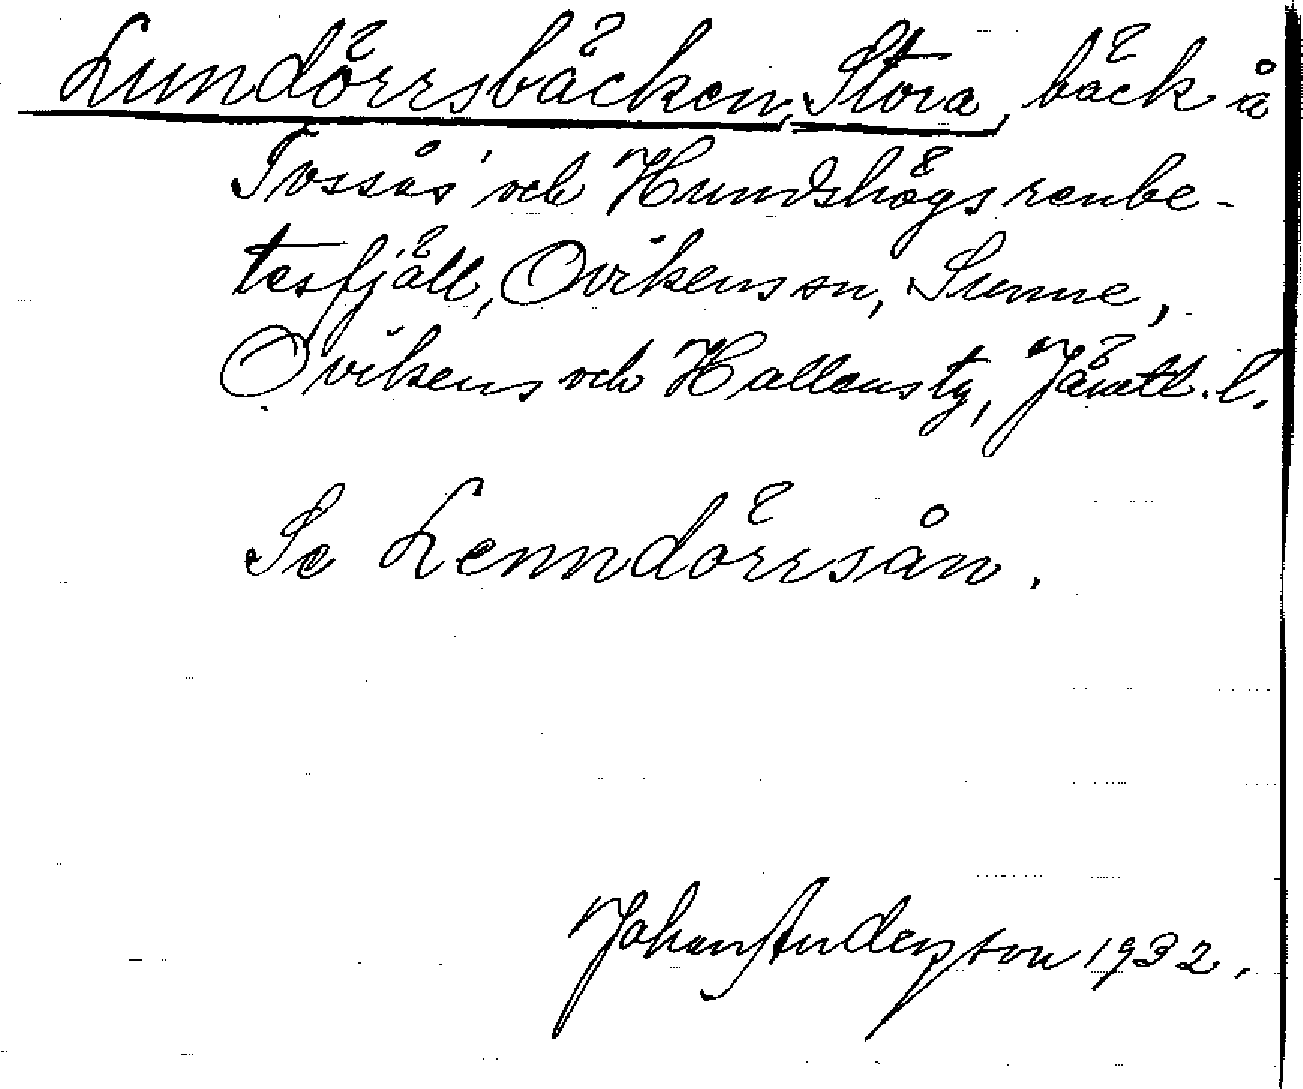 Lundörrsbäcken, Stora, bäck å
Tossås' och Hundshögs renbe-
tesfjäll, Ovikens sn, Sunne,
Ovikens och Hallens tg, Jämtl. l.
Se Lenndörrsån.
Johan Anderzson 1932.